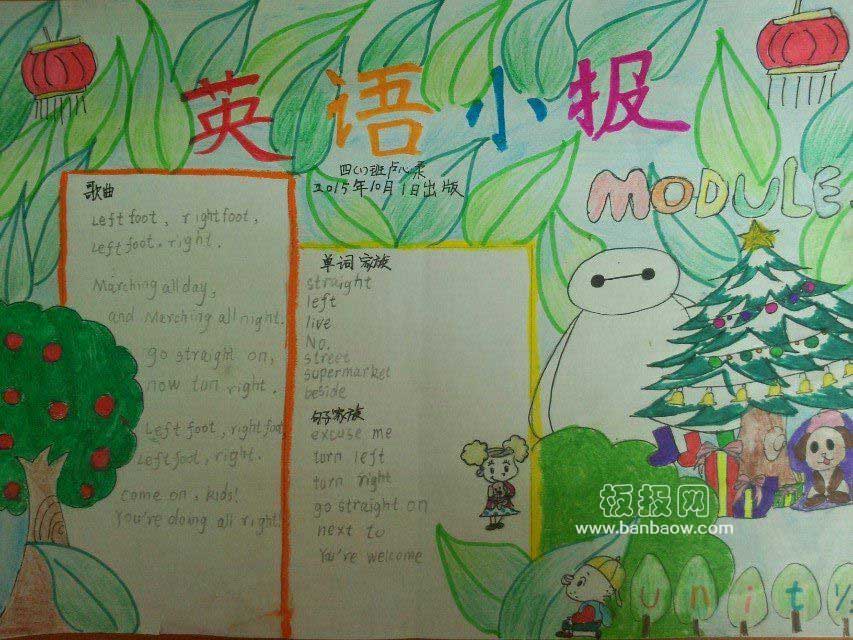 英语小报
四(1)班卢心柔
2015年10月1日出版
MODULE
歌曲
Left foot, right foot,
Left foot, right.
Marching all day,
and Marching all night.
go straight on,
now turn right.
Left foot, right foot
Left foot, right.
come on, kids!
You're doing all right
单词家族
straight
left
live
No.
street
supermarket
beside
句子家族
excuse me
turn left
turn right
go straight on
next to
You're welcome
板报网
www.banbaow.com
unit